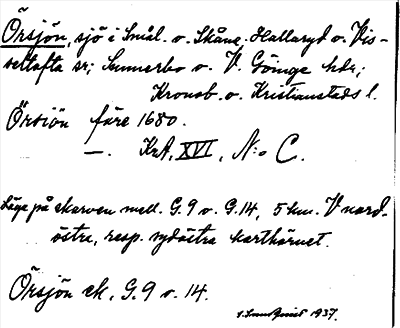 Örsjön, sjö i Smål. o. Skåne. Hallaryd o. Vis-
seltofta sr; Sunnerbo o. V. Göinge hdr;
Kronob. o. Kristianstads l.
Örsiön före 1680.
—. KrA, XVI, N:o C.
Läge på skarven mell. G.9 o. G.14, 5 km. V nord-
östra, resp. sydöstra karthörnet.
Örsjön ek. G.9 o. 14.
Lundquist 1937.